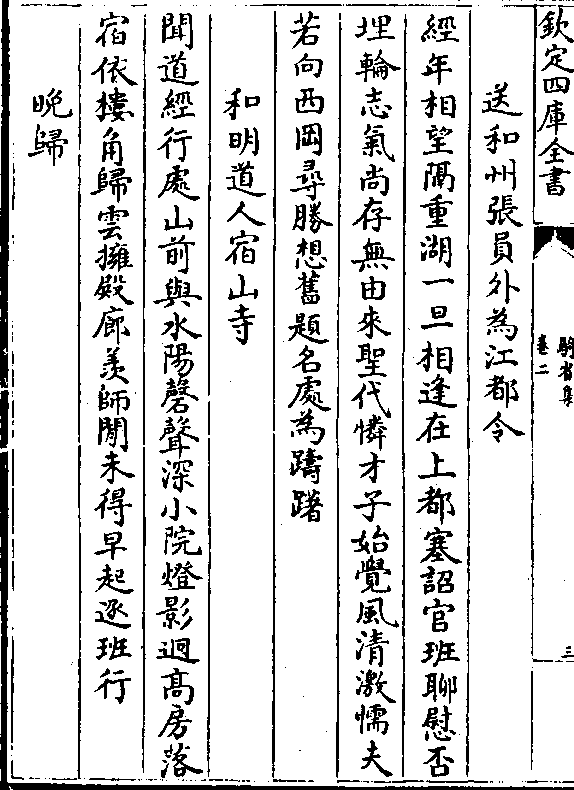 欽定四庫全書
騎省集
卷二
三
送和州張員外為江都令
經年相望隔重湖一旦相逢在上都塞詔官班聊慰否
埋輪志氣尚存無由來聖代憐才子始覺風清激懦夫
若向西岡尋勝想舊題名處為躊躇
和明道人宿山寺
聞道經行處山前與水陽磬聲深小院燈影迥高房落
宿依樓角歸雲擁殿廊羨師閒未得早起逐班行
晚歸